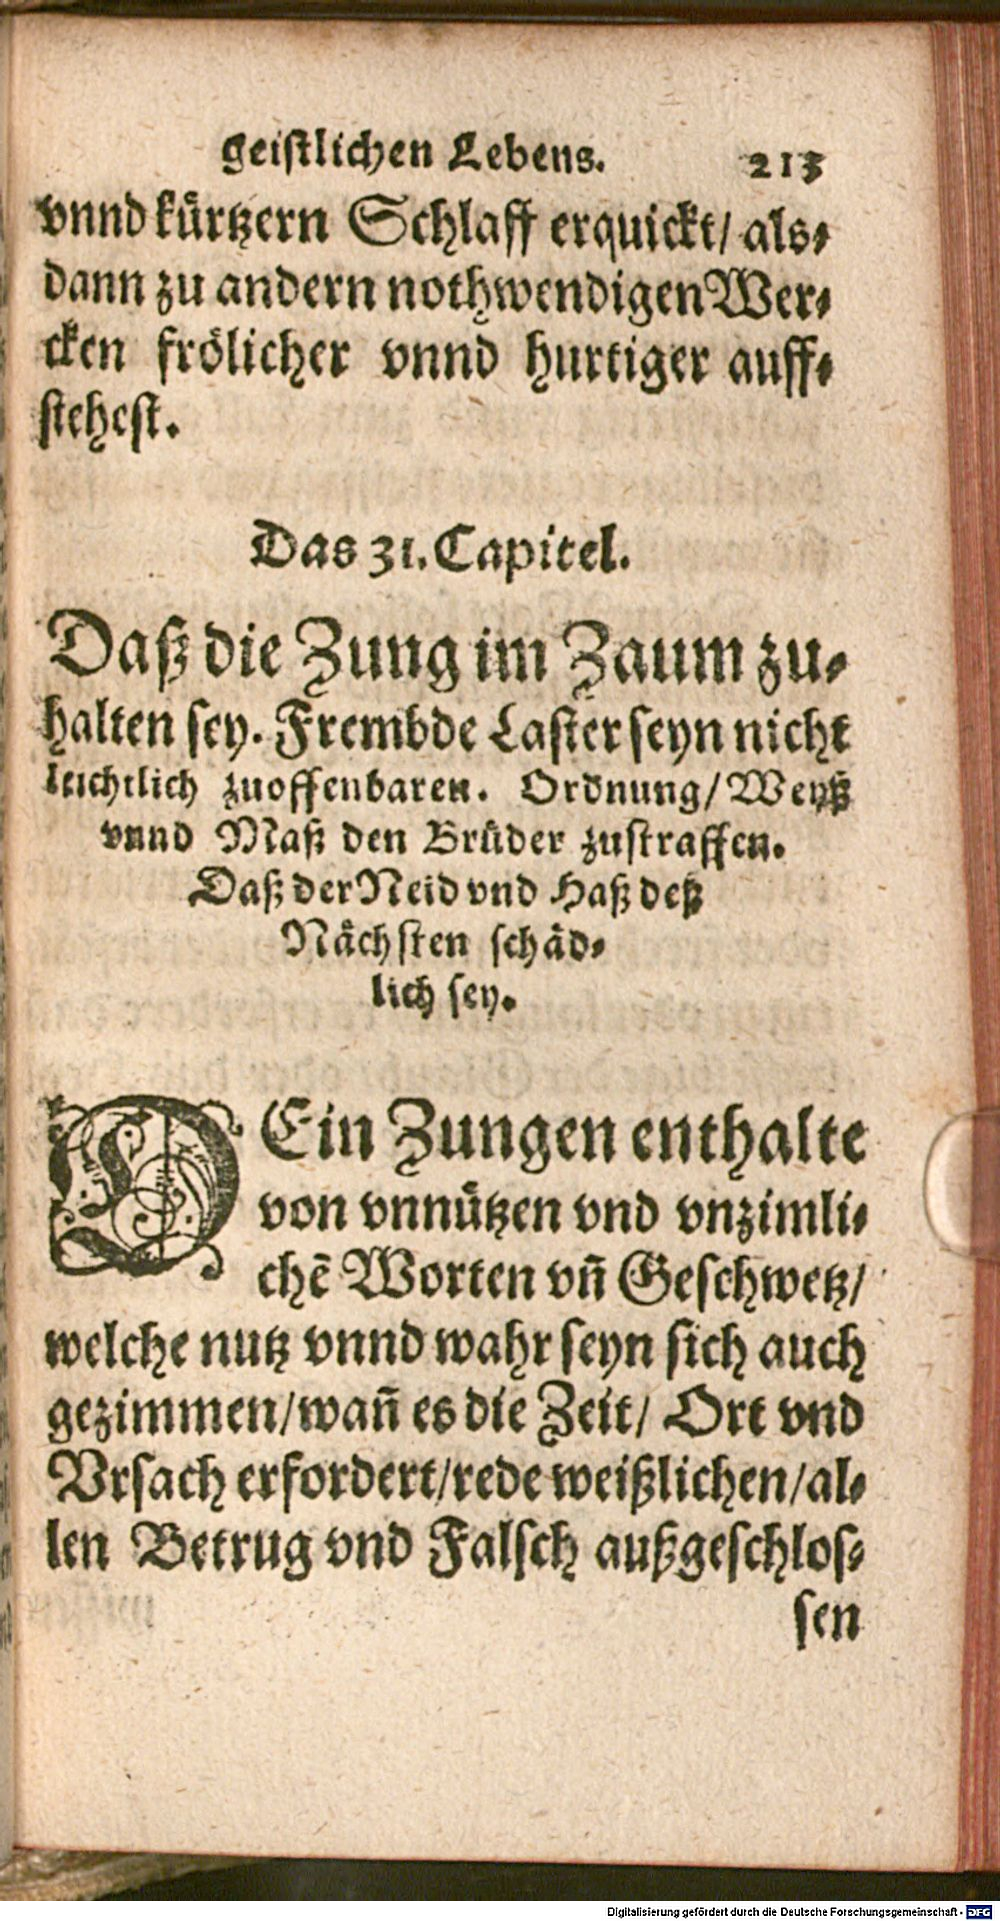 geistlichen Lebens. 213
vnnd kürtzern Schlaff erquickt/ als-
dann zu andern nothwendigen Wer-
cken frölicher vnnd hurtiger auff-
stehest.
Das 31. Capitel.
Daß die Zung im Zaum zu-
halten sey. Frembde Laster seyn nicht
leichtlich zuoffenbaren. Ordnung/ Weyß
vnnd Maß den Brüder zustraffen.
Daß der Neid vnd Haß deß
Nächsten schäd-
lich sey.
DEin Zungen enthalte
von vnnützen vnd vnzimli-
chē Worten vñ Geschwetz/
welche nutz vnnd wahr seyn sich auch
gezimmen/ wañ es die Zeit/ Ort vnd
Vrsach erfordert/ rede weißlichen/ al-
len Betrug vnd Falsch außgeschlos-
sen
Digitalisierung gefördert durch die Deutsche Forschungsgemeinschaft - DFG